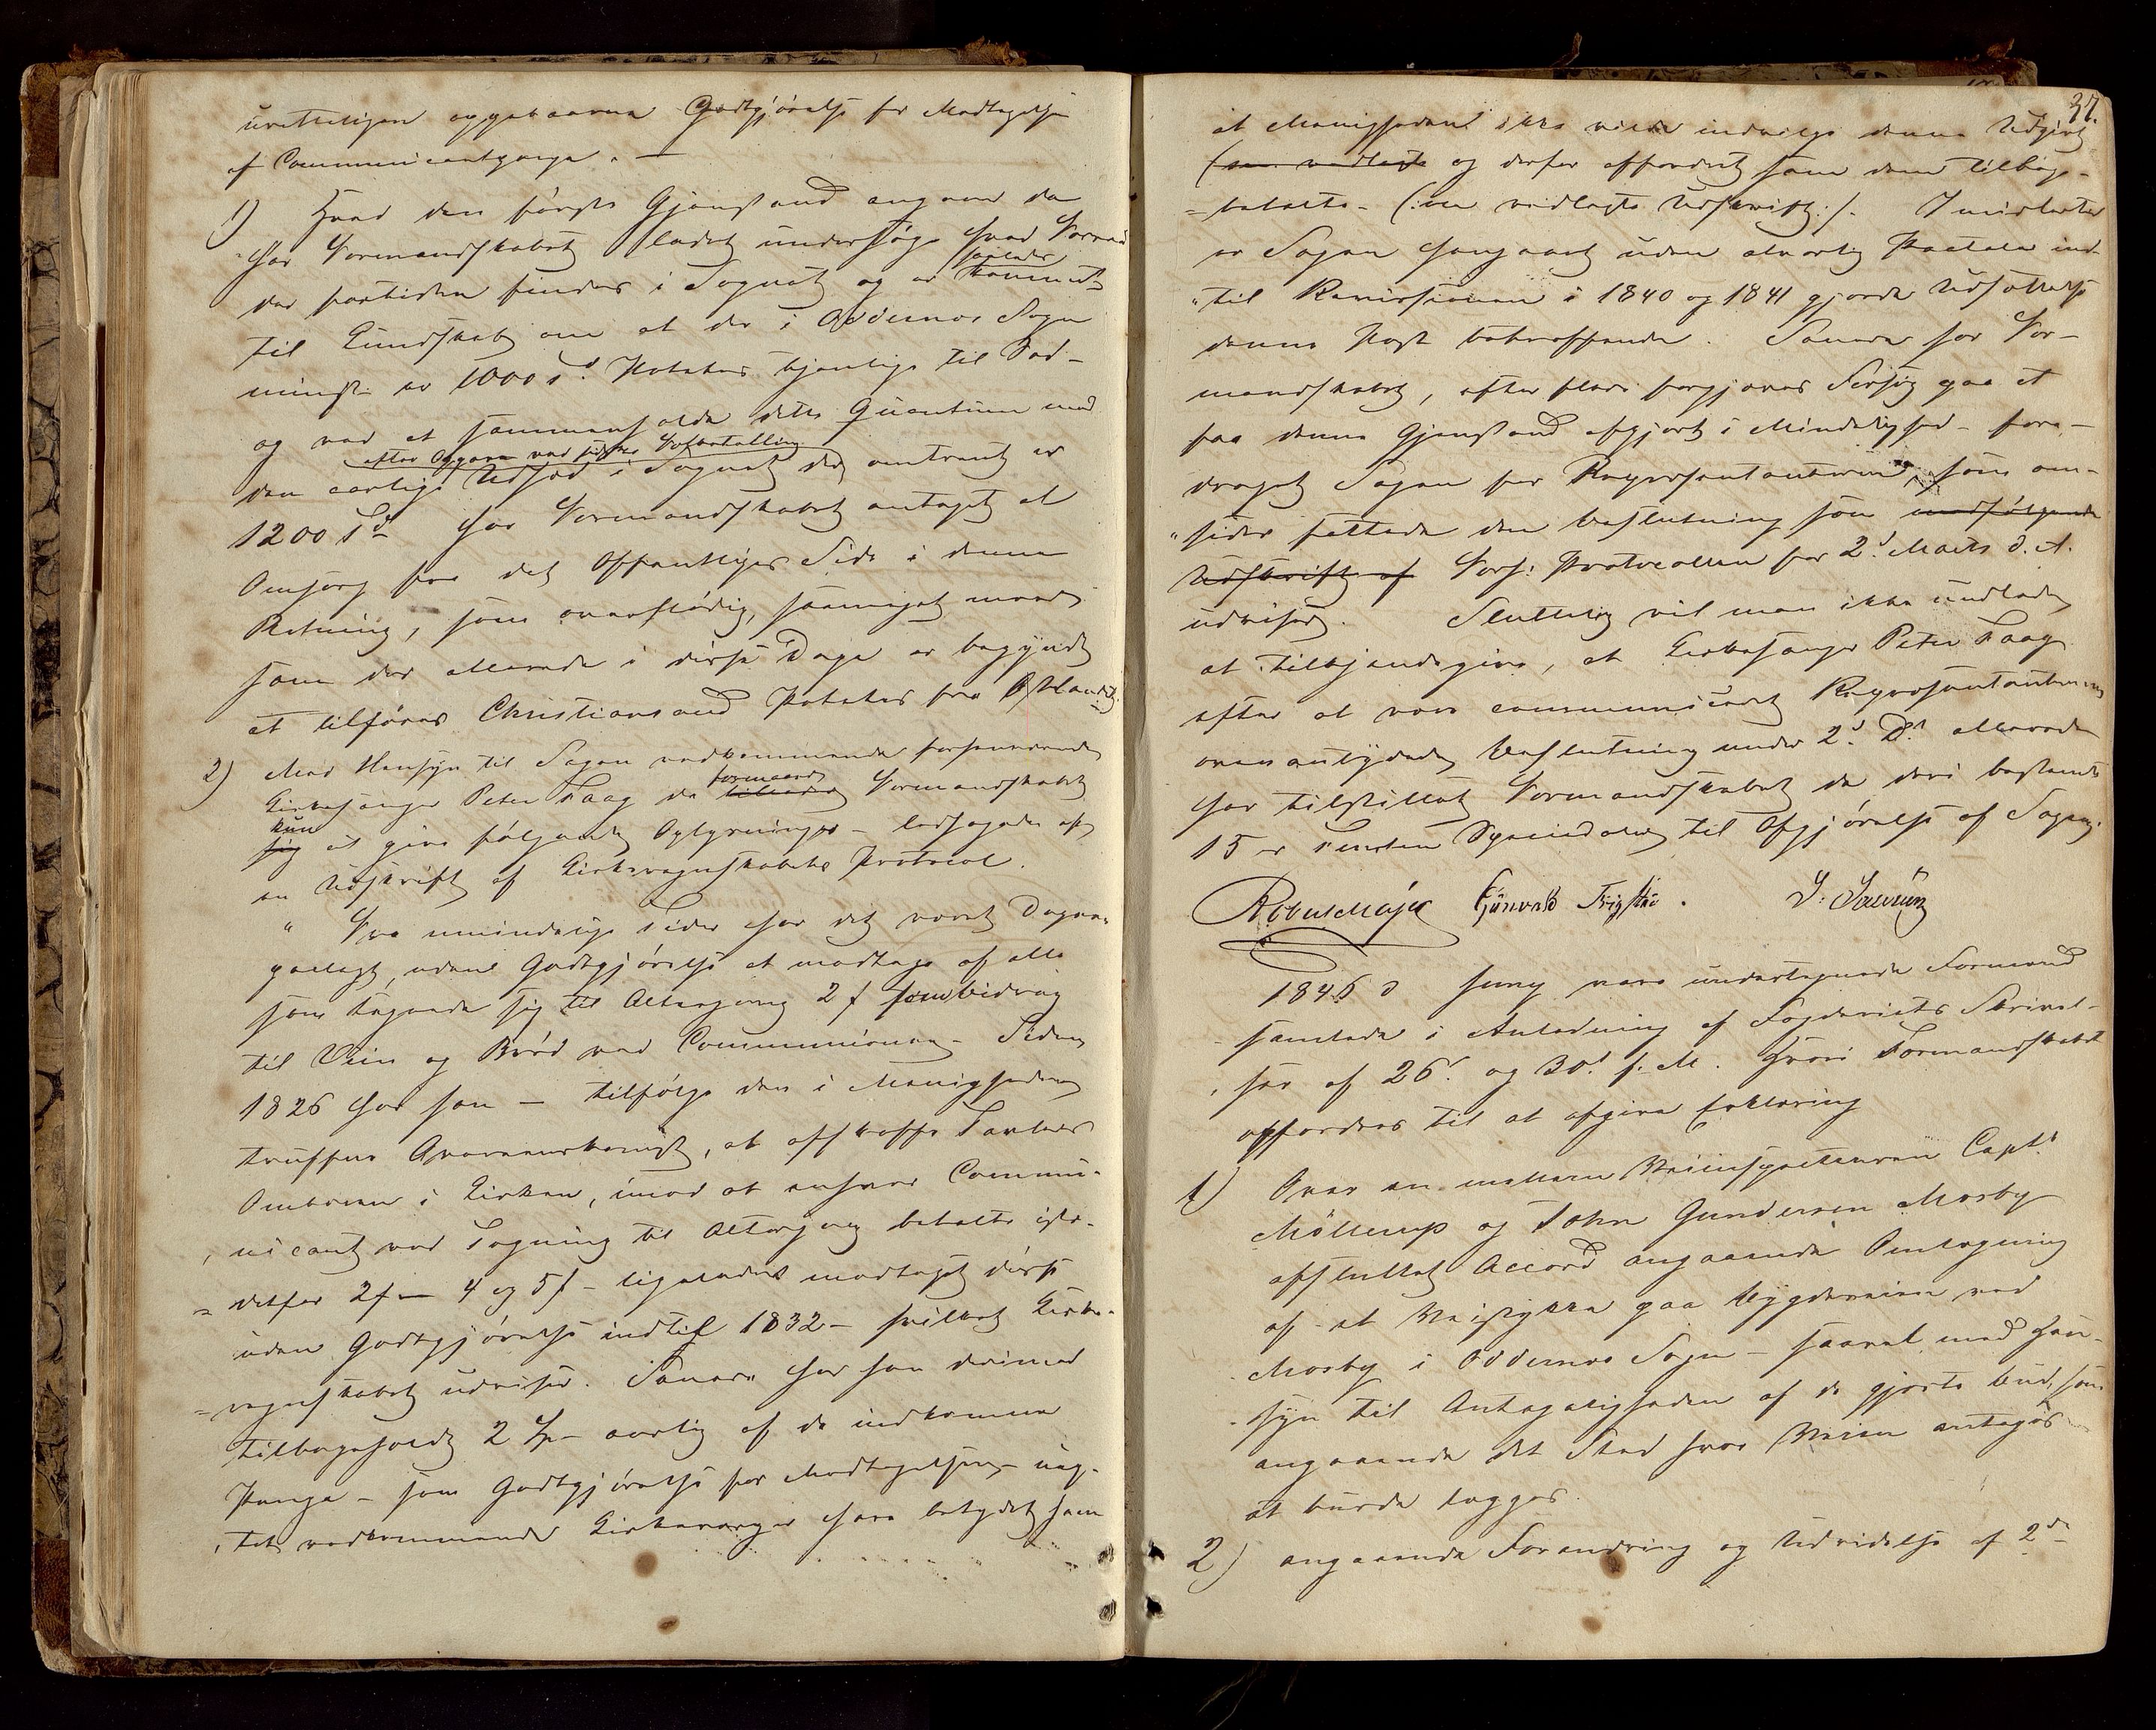 urettelligen oppebaarne Godtgjörelse for Modtagelsen
af Communicantpenge. —
1) Hvad den förste Gjenstand angaaer da
har Formandskabet ladet undersöge hvad Forraad
saaledes
der fortiden findes i Sognet og er kommet
til Kundskab om at der i Oddernes Sogn
mindst er 1000 Td. Poteter tjenlige til Sæd -
og ved at sammenholde dette Quantum med
efter Opgave ved sidste Folketælling
den aarlige Udsæd i Sognet der omtrent er
1200 Td har Formandskabet antaget at
Omsorg fra det Offentliges Side i denne
Retning, som overflödig, saameget meere
som der allerede i disse Dage er begyndt
at tilföres Christiansand Poteter fra Østlandet.
2) Med Hensyn til Sagen vedkommende forhenværende
formaaer
Kirkesanger Peter Taag da tillader Formandskabet
kun
sig at give fölgende Oplysninger - ledsagede af
en Udskrift af Kirkeregnskabets Protocol.
" Fra umindelige Tider har det været Degnen
paalagt, uden Godtgjörelse at modtage af alle
som tegnede sig til Altergang 2 s som bidrag
til Viin og Bröd ved Communionen - Siden
1826 har han — tilfölge den i Menigheden
trufne Overeenskomst, at afskaffe Tavlens
Ombæren i Kirken, imod at enhver Commu-
nicant ved Tegning til Altergang betalte iste-
= detfor 2 s — 4 og 5 s - ligeledes modtaget disse
uden Godtgjörelse indtil 1832 - hvilket Kirke-
= regnskabet udviser. Senere har han derimod
tilbageholdt 2 Sp - aarlig af de indkomne
Penge - som Godtgjörelse for Modtagelsen, uag-
tet vedkommende Kirkeværger have betydet ham
37.
at Menigheden ikke vilde indvilge denne Udgivt
(see vedlagte og derfor affordret ham dem tilbage-
= betalte - (:see vedlagte Udskrivt:). Imidlertid
er Sagen hengaaet uden alvorlig Paatale ind-
" til Revisionen i 1840 og 1841 gjorde Udsættelse
denne Post betreffende. Senere har For-
mandskabet, efter flere forgjæves Forsög paa at
faa denne Gjenstand afgjort i Mindelighed - fore-
draget Sagen for Repræsentanterne, som om-
" sider fattede den Beslutning som medfölgende
Udskrift af Forh: Protocollen for 2d Marts d. A.
udviser. Sluttelig vil man ikke undlade
at tilkjendegive, at Kirkesanger Peter Taag
efter at være communiceret Repræsentanternes
ovenantydede Beslutning under 2d Ds. allerede
har tilstillet Formandskabet de deri bestemte
15 - femten Speciedaler til Afgjörelse af Sagen.
Gunvald Trigstad. J. Jensen
1846 d Juny vare undertegnede Formænd
samlede i Anledning af Fogderiets Skrivel-
ser af 26d. og 30d. f. M. hvori Formandskabet
opfordres til at afgive Erklæring
1) Over en mellem Veiinspecteuren Capt.
Möllerup og Tohn Gundersen Mosby
afsluttet Accord angaaende Omlægning
af et Veistykke paa Bygdeveien ved
Mosby i Oddernes Sogn - saavel med Hen-
- syn til Antageligheden af de gjorte Bud, som
angaaende det Sted hvor Veien antages
at burde lægges.
2) angaaende Forandring og Udvidelse af 2de